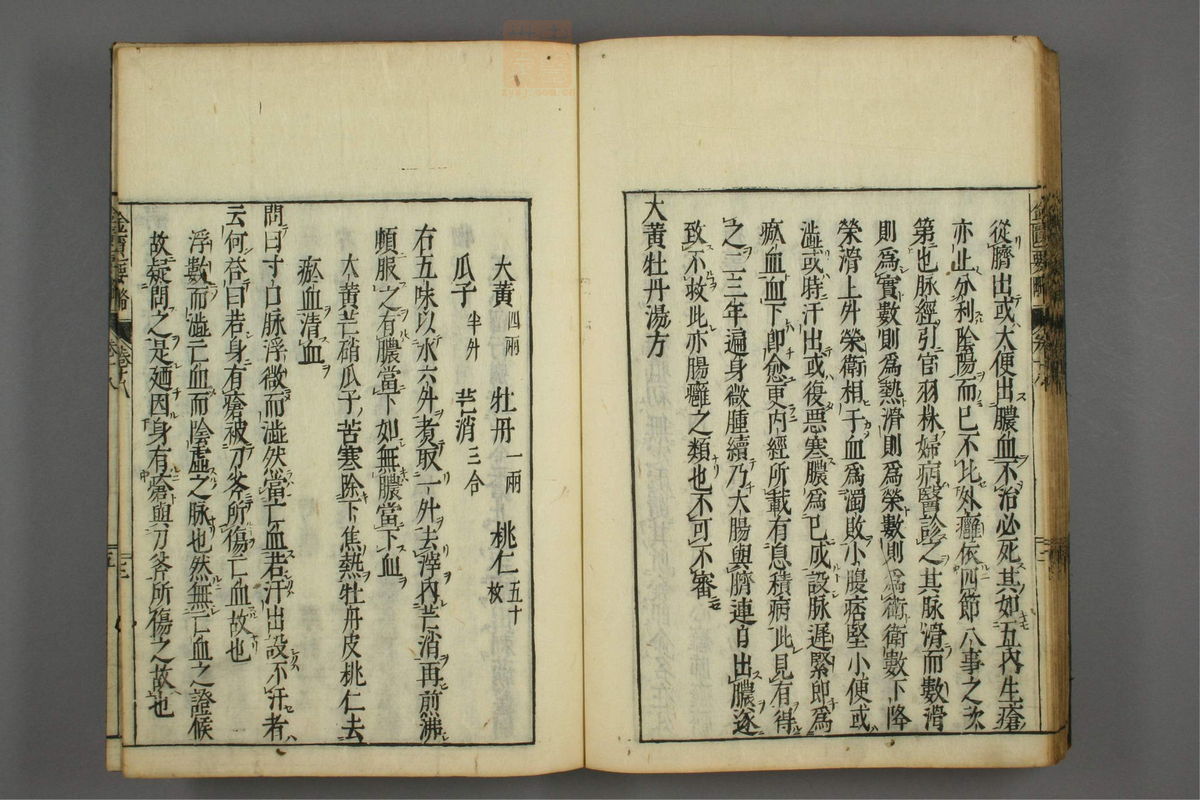 從臍出或大便出膿血不治必死其如五內生瘡
亦止分利陰陽而已不比外癰依四節八事之次
第也脉經引官羽林婦病醫診之其脉滑而數滑
則爲實數則爲熱滑則爲榮數則爲衛衛數下降
榮滑上升榮衛相干血爲濁敗小腹痞堅小便或
澁或時汗出或復惡寒膿爲已成設脉遲緊即爲
瘀血血下即愈更內經所載有息積病此見有得
之二三年遍身微腫續乃大腸與臍連日出膿遂
致不救此亦腸癰之類也不可不審
大黃牡丹湯方
大黃四兩 牡丹一兩 桃仁五十枚
瓜子半升 芒消三合
右五味以水六升煮取一升去滓內芒消再煎沸
頓服之有膿當下如無膿當下血
大黃芒硝瓜子苦寒除下焦熱牡丹皮桃仁去
瘀血清血
問曰寸口脉浮微而澁然當亡血若汗出設不汗者
云何荅曰若身有瘡被刀斧所傷亡血故也
浮數而澁亡血而陰虛之脉也然無亡血之證候
故疑問之是廼因身有瘡與刀斧所傷之故也